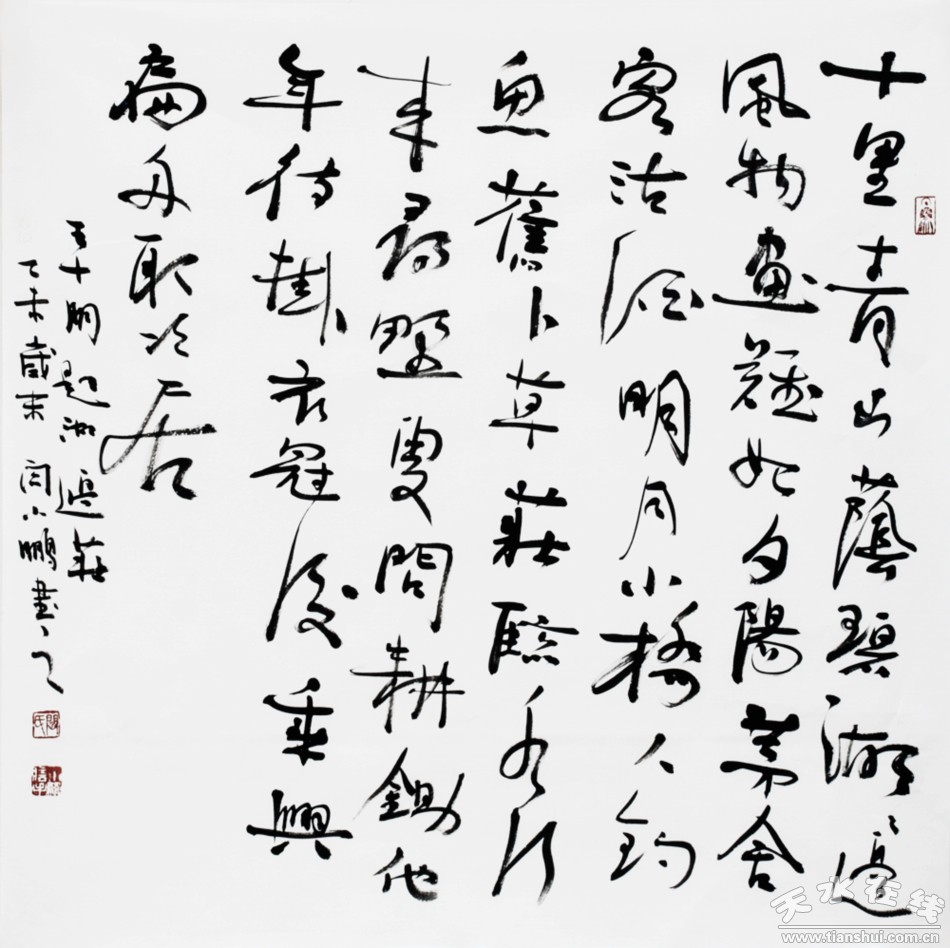 十里青山蔭碧湖々邊
風物畫難如夕陽茅舍
客沽酒明月小橋人釣
魚舊卜草莊臨水竹
来尋野叟問耕鋤他
年待掛衣冠後乘興
扁舟取次居
王十朋題湖邊莊
乙未歲末閆小鵬書之
天水在线
www.tianshui.com.cn